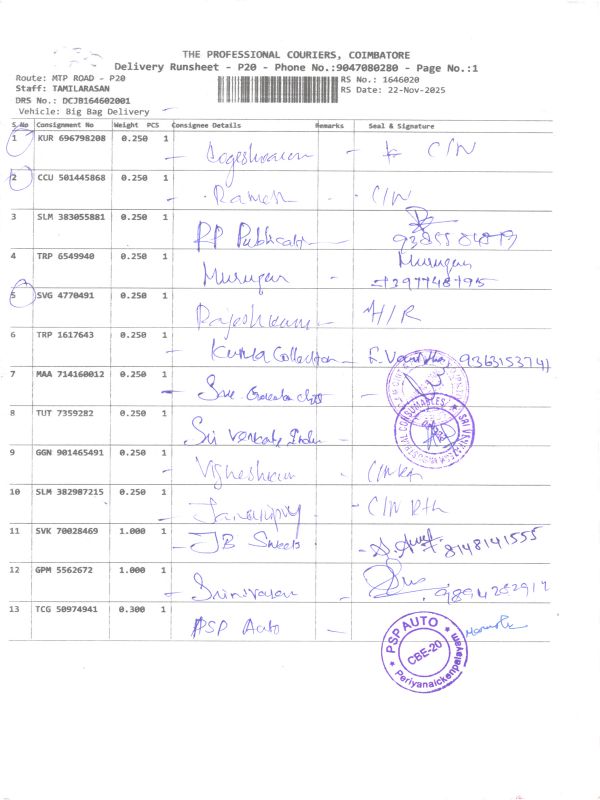 THE PROFESSIONAL COURIERS, COIMBATORE
Delivery Runsheet - P20 - Phone No.:9047080280 - Page No.:1
Route: MTP ROAD - P20
RS No.: 1646020
Staff: TAMILARASAN
RS Date: 22-Nov-2025
DRS No.: DCJB164602001
Vehicle: Big Bag Delivery
S.No Consignment No Weight PCS Consignee Details Remarks Seal & Signature
1 KUR 696798208 0.250 1 - C/N
2 CCU 501445868 0.250 1 Ramesh - C/N
3 SLM 383055881 0.250 1 RP Publication
4 TRP 6549940 0.250 1 Murugan - Murugan
5 SVG 4770491 0.250 1 Rajeshwari - H/R
6 TRP 1617643 0.250 1 Kurtha Collection - 9363153741
7 MAA 714160012 0.250 1 - Sree
8 TUT 7359282 0.250 1 Sri Venkats
INDUSTRIAL CONSUMABLES
9 GGN 901465491 0.250 1 Vigneshwar
10 SLM 382987215 0.250 1 - C/N
11 SVK 70028469 1.000 1 - JB Sweets - 8148141555
12 GPM 5562672 1.000 1 - Srinivasan
13 TCG 50974941 0.300 1 PSP Auto -
PSP AUTO
CBE-20
Periyanaickenpalayam